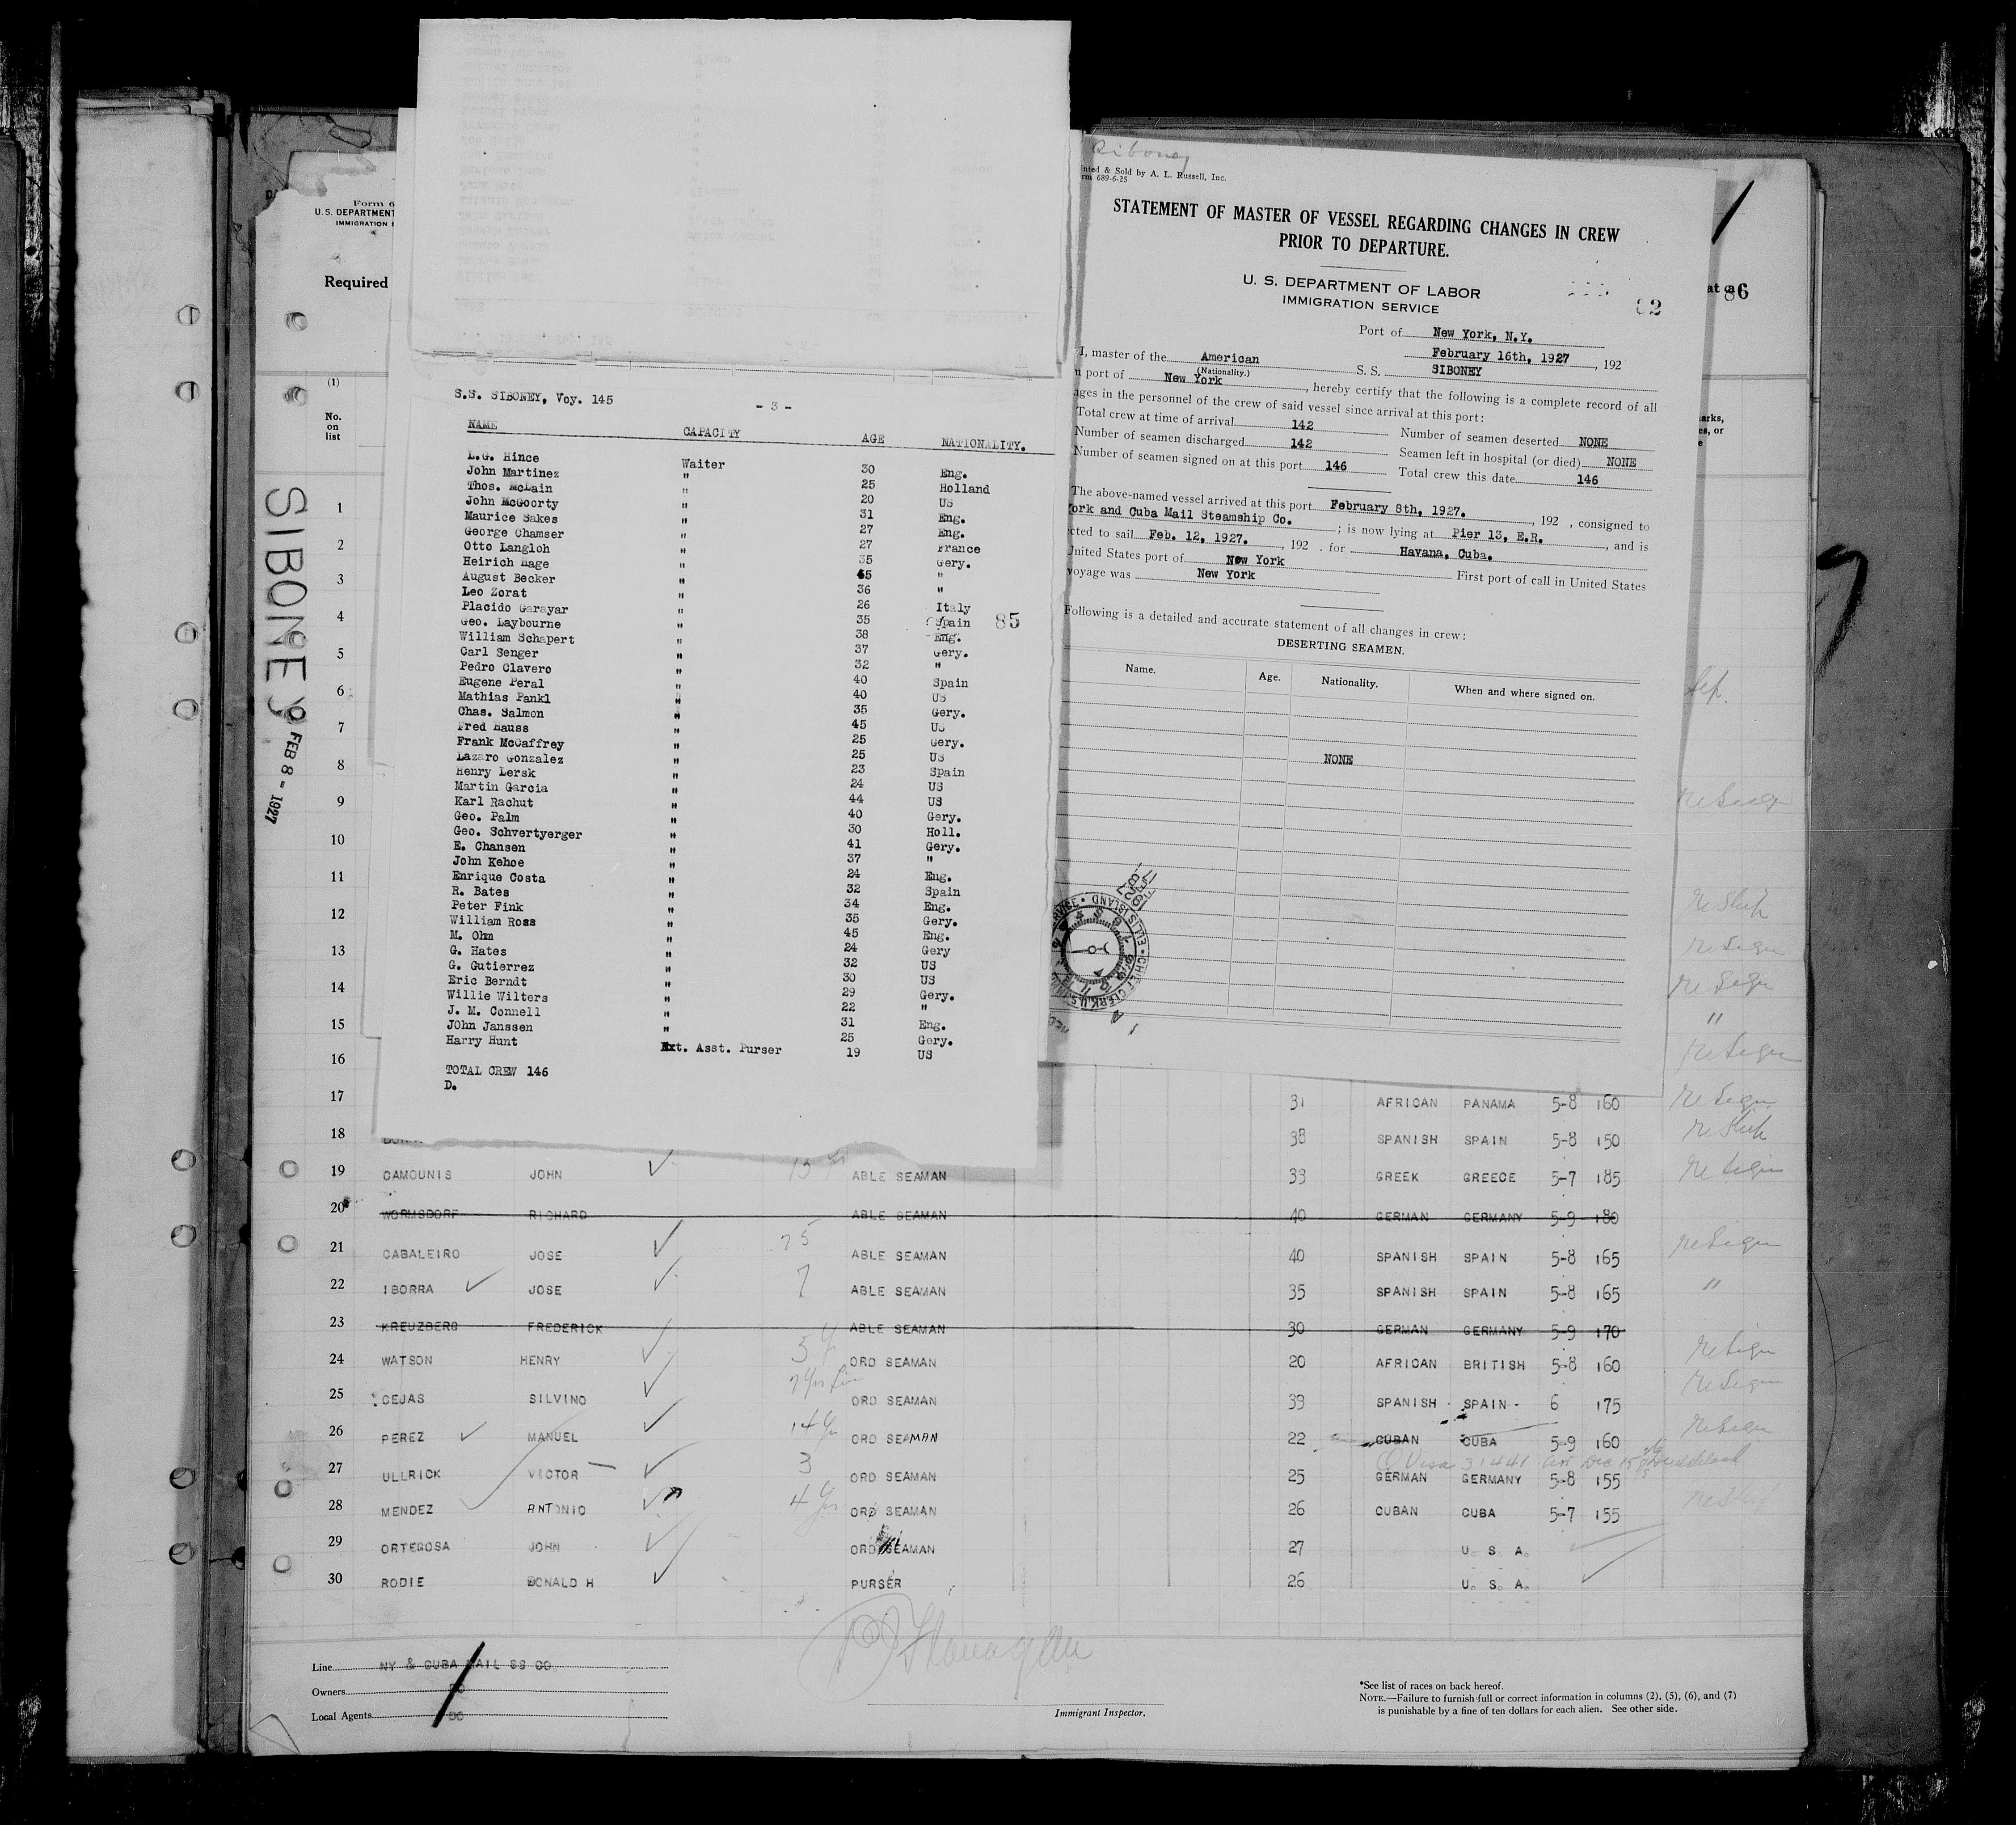 Form 6
U.S. DEPARTMENT
IMMIGRATION
Required
(1)
No.
on
list
SIBONEY
FEB 8 - 1927
S.S. SIBONEY, Voy. 145
- 3 -
NAME CAPACITY AGE NATIONALITY.
L.G. Hince Waiter 30 Eng.
John Martinez " 25 Holland
Thos. McLain " 20 US
John McGoorty " 31 Eng.
Maurice Sakes " 27 Eng.
George Chamser " 27 France
Otto Langloh " 35 Gery.
Heirich Hage " 45 "
August Becker " 36 "
Leo Zorat " 26 Italy
Placido Garayar " 35 Spain 85
Geo. Laybourne " 38 Eng.
William Schapert " 37 Gery.
Carl Senger " 32 "
Pedro Clavero " 40 Spain
Eugene Peral " 40 US
Mathias Pankl " 35 Gery.
Chas. Salmon " 45 US
Fred Hauss " 25 Gery.
Frank McCaffrey " 25 US
Lazaro Gonzalez " 23 Spain
Henry Lersk " 24 US
Martin Garcia " 44 US
Karl Rachut " 40 Gery.
Geo. Palm " 30 Holl.
Geo. Schvertyerger " 41 Gery.
E. Chansen " 37 "
John Kehoe " 24 Eng.
Enrique Costa " 32 Spain
R. Bates " 34 Eng.
Peter Fink " 35 Gery.
William Ross " 45 Eng.
M. Ohm " 24 Gery
G. Hates " 32 US
G. Gutierrez " 30 US
Eric Berndt " 29 Gery.
Willie Wilters " 22 "
J. M. Connell " 31 Eng.
JOhn Janssen " 25 Gery.
Harry Hunt Ext. Asst. Purser 19 US
TOTAL CREW 146
D.
Siboney
inted & Sold by A. L. Russell, Inc.
rm 689-6-25
STATEMENT OF MASTER OF VESSEL REGARDING CHANGES IN CREW
PRIOR TO DEPARTURE.
U. S. DEPARTMENT OF LABOR
IMMIGRATION SERVICE
82
at a
86
Port of New York, N.Y.
February 16th, 1927, 192
I, master of the American S. S. SIBONEY
(Nationality.)
n port of New York, hereby certify that the following is a complete record of all
ges in the personnel of the crew of said vessel since arrival at this port:
Total crew at time of arrival 142 Number of seamen deserted NONE
Number of seamen discharged 142 Seamen left in hospital (or died) NONE
Number of seamen signed on at this port 146 Total crew this date 146
The above-named vessel arrived at this port February 8th, 1927., 192 , consigned to
ork and Cuba Mail Steamship Co. ; is now lying at Pier 13, E.R., and is
cted to sail Feb. 12, 1927., 192 . for Havana, Cuba.
United States port of New York First port of call in United States
voyage was New York
Following is a detailed and accurate statement of all changes in crew:
DESERTING SEAMEN.
Name. Age. Nationality. When and where signed on.
NONE
ELLIS ISLAND
CHIEF CLERK
arks,
es, or
e
1
2
3
4
5
6
7
8
9
10
11
12
13
14
15
16
17 31 AFRICAN PANAMA 5-8 160 ReSign
18 38 SPANISH SPAIN 5-8 150
19 CAMOUNIS JOHN ABLE SEAMAN 33 GREEK GREECE 5-7 185 ReSign
20 WORMSDORF RICHARD ABLE SEAMAN 40 GERMAN GERMANY 5-9 180
21 CABALEIRO JOSE 25 ABLE SEAMAN 40 SPANISH SPAIN 5-8 165 ReSign
22 IBORRA JOSE 7 ABLE SEAMAN 35 SPANISH SPAIN 5-8 165 "
23 KREUZBERG FREDERICK ABLE SEAMAN 30 GERMAN GERMANY 5-9 170
24 WATSON HENRY ORD SEAMAN 20 AFRICAN BRITISH 5-8 160 ReSign
25 CEJAS SILVINO ORD SEAMAN 39 SPANISH SPAIN 6 175 ReSign
26 PEREZ MANUEL 14 ORD SEAMAN 22 CUBAN CUBA 5-9 160 ReSign
27 ULLRICK VICTOR 3 ORD SEAMAN 25 GERMAN GERMANY 5-8 155
28 MENDEZ ANTONIO 4 ORD SEAMAN 26 CUBAN CUBA 5-7 155
29 ORTEGOSA JOHN ORD SEAMAN 27 U. S. A.
30 RODIE DONALD H PURSER 26 U. S. A.
Line NY & CUBA MAIL SS CO
Owners DO
Local Agents DO
Immigrant Inspector.
*See list of races on back hereof.
NOTE.—Failure to furnish full or correct information in columns (2), (5), (6), and (7)
is punishable by a fine of ten dollars for each alien. See other side.